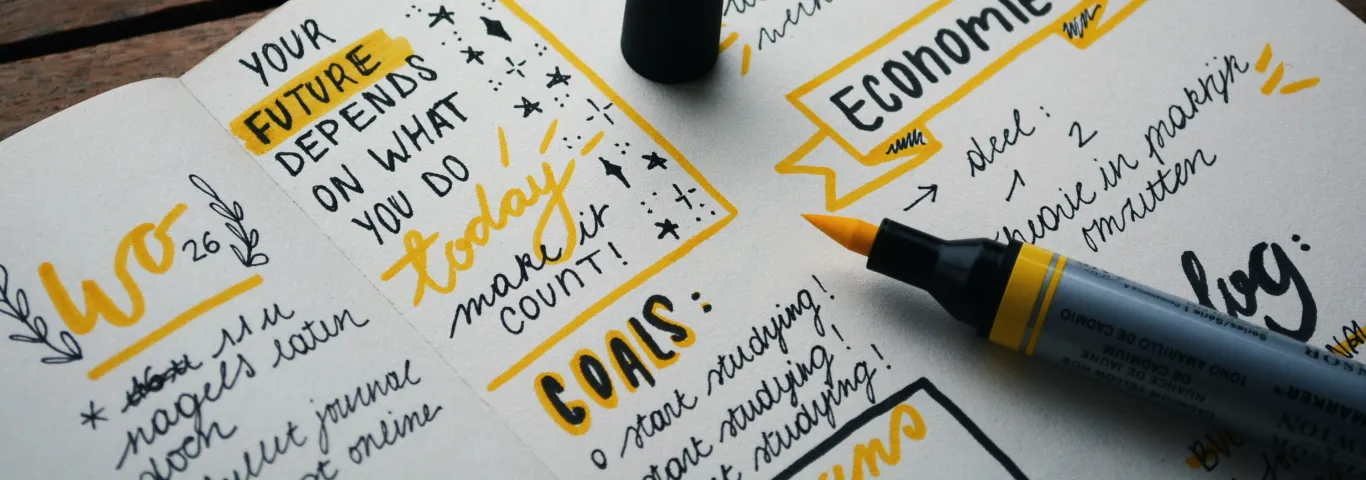 wo 26
11 u
nagels laten
doen
bullet journal
online
YOUR
FUTURE
DEPENDS
ON WHAT
YOU DO
today
make it
COUNT!
GOALS:
o start studying!
start studying!
start studying!
ECONOMIE
→ deel:
1 2
theorie in praktijk
omzetten
log:
Series/Série 1
CADMIUM YELLOW HUE
NUANCE DE JAUNE
DE CADMIUM
TONO AMARILLO DE CADMIO
MARKER™